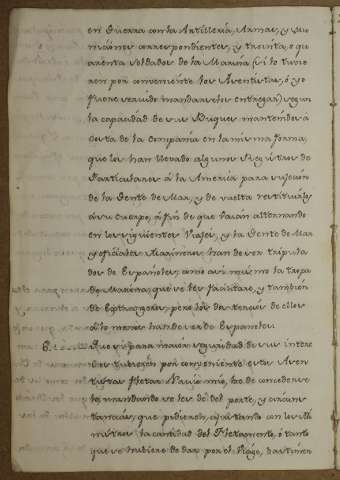 en Guerra con la Artilleria, Armas, y mu
niciones correspondientes, y treinta, o qua
renta Soldados de la Marina (si lo tuvie
ren por conveniente los Asentistas, ó yo
fuere servido mandarselos entregar) segun
la capacidad de sus Buques mantenidos á
costa de la Compañia en la misma forma,
que los han llevado algunos Registros de
Particulares á la America para sujecion
de la Gente de Mar, y de vuelta restituirlos
á su cuerpo, á fin de que vaian alternando
en los siguientes Viajes, y la Gente de Mar
y oficiales Marineros, han de ser tripula
dos de Españoles; como asi mismo la tropa
de Marina, que se les facilitare, y tambien
de Extrangeros, pero los dos tercios de ellos
á lo menos han de ser de Españoles.
8. Que si para maior seguridad de sus intere
ses tubiesen por conveniente estos Asen
tistas fletar Navio mio, se ha de concederse
lo mandandoseles dé del porte, y circuns
tancias, que pidiesen, ajustando con los Mi
nistros la cantidad del Fletamento, ó tanto
que se hubiere de dar por el Viage, ha